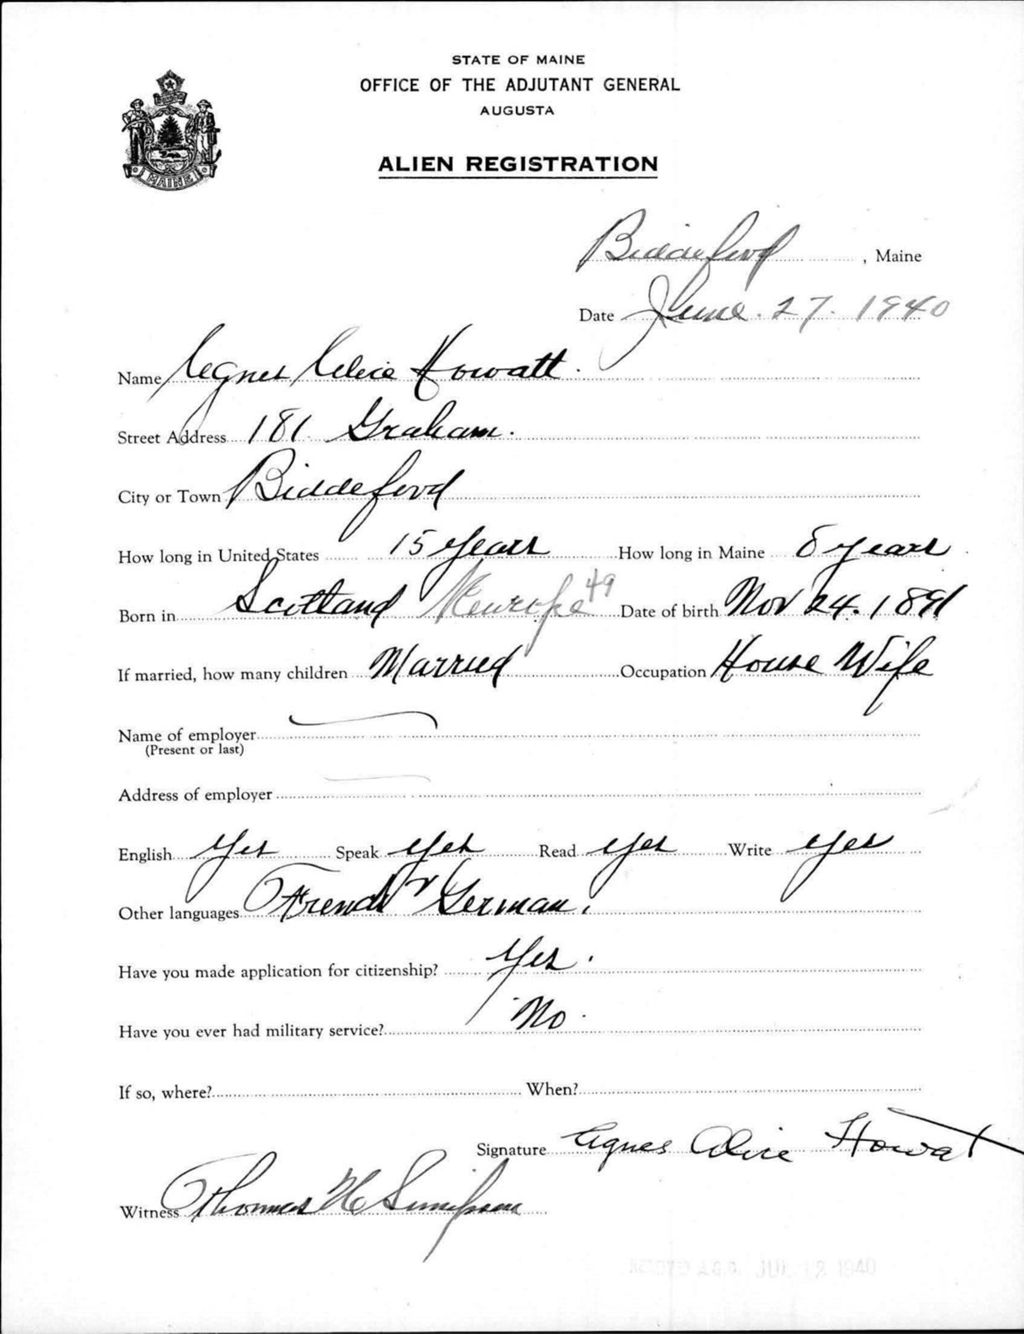 STATE OF MAINE
OFFICE OF THE ADJUTANT GENERAL
AUGUSTA
ALIEN REGISTRATION
MAINE
Biddeford, Maine
Date June. 27. 1940
Name Agnes Alice Howatt.
Street Address 181 Graham.
City or Town Biddeford
How long in United States 15 years How long in Maine 8 years
Born in Scotland 49 Date of birth Nov 24. 1891
If married, how many children Married Occupation House Wife
Name of employer
(Present or last)
Address of employer
English Yes Speak yes Read yes Write yes
Other languages French German.
Have you made application for citizenship? Yes.
Have you ever had military service? No.
If so, where? When?
Signature Agnes Alice Howat
Witness Thomas H Simpson
A.G.O. JUL 12 1940